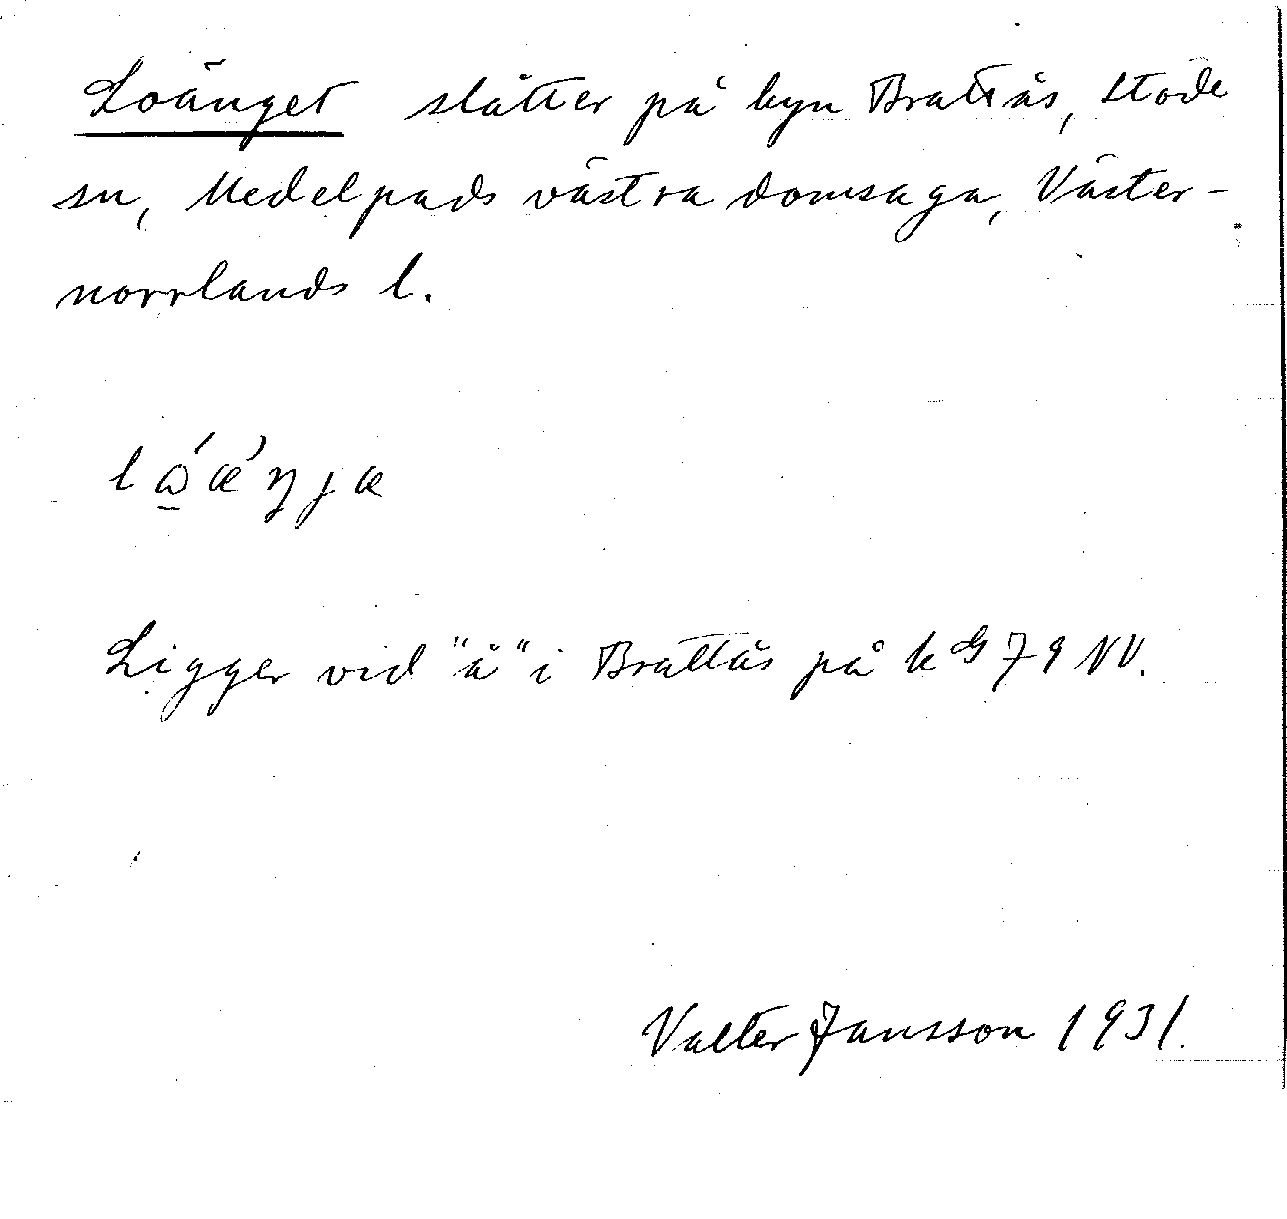 Loänget slåtter på byn Brattås, Stöde
sn, Medelpads västra domsaga, Väster-
norrlands l.
Ligger vid "å" i Brattås på k G 79 NV.
Valter Jansson 1931.